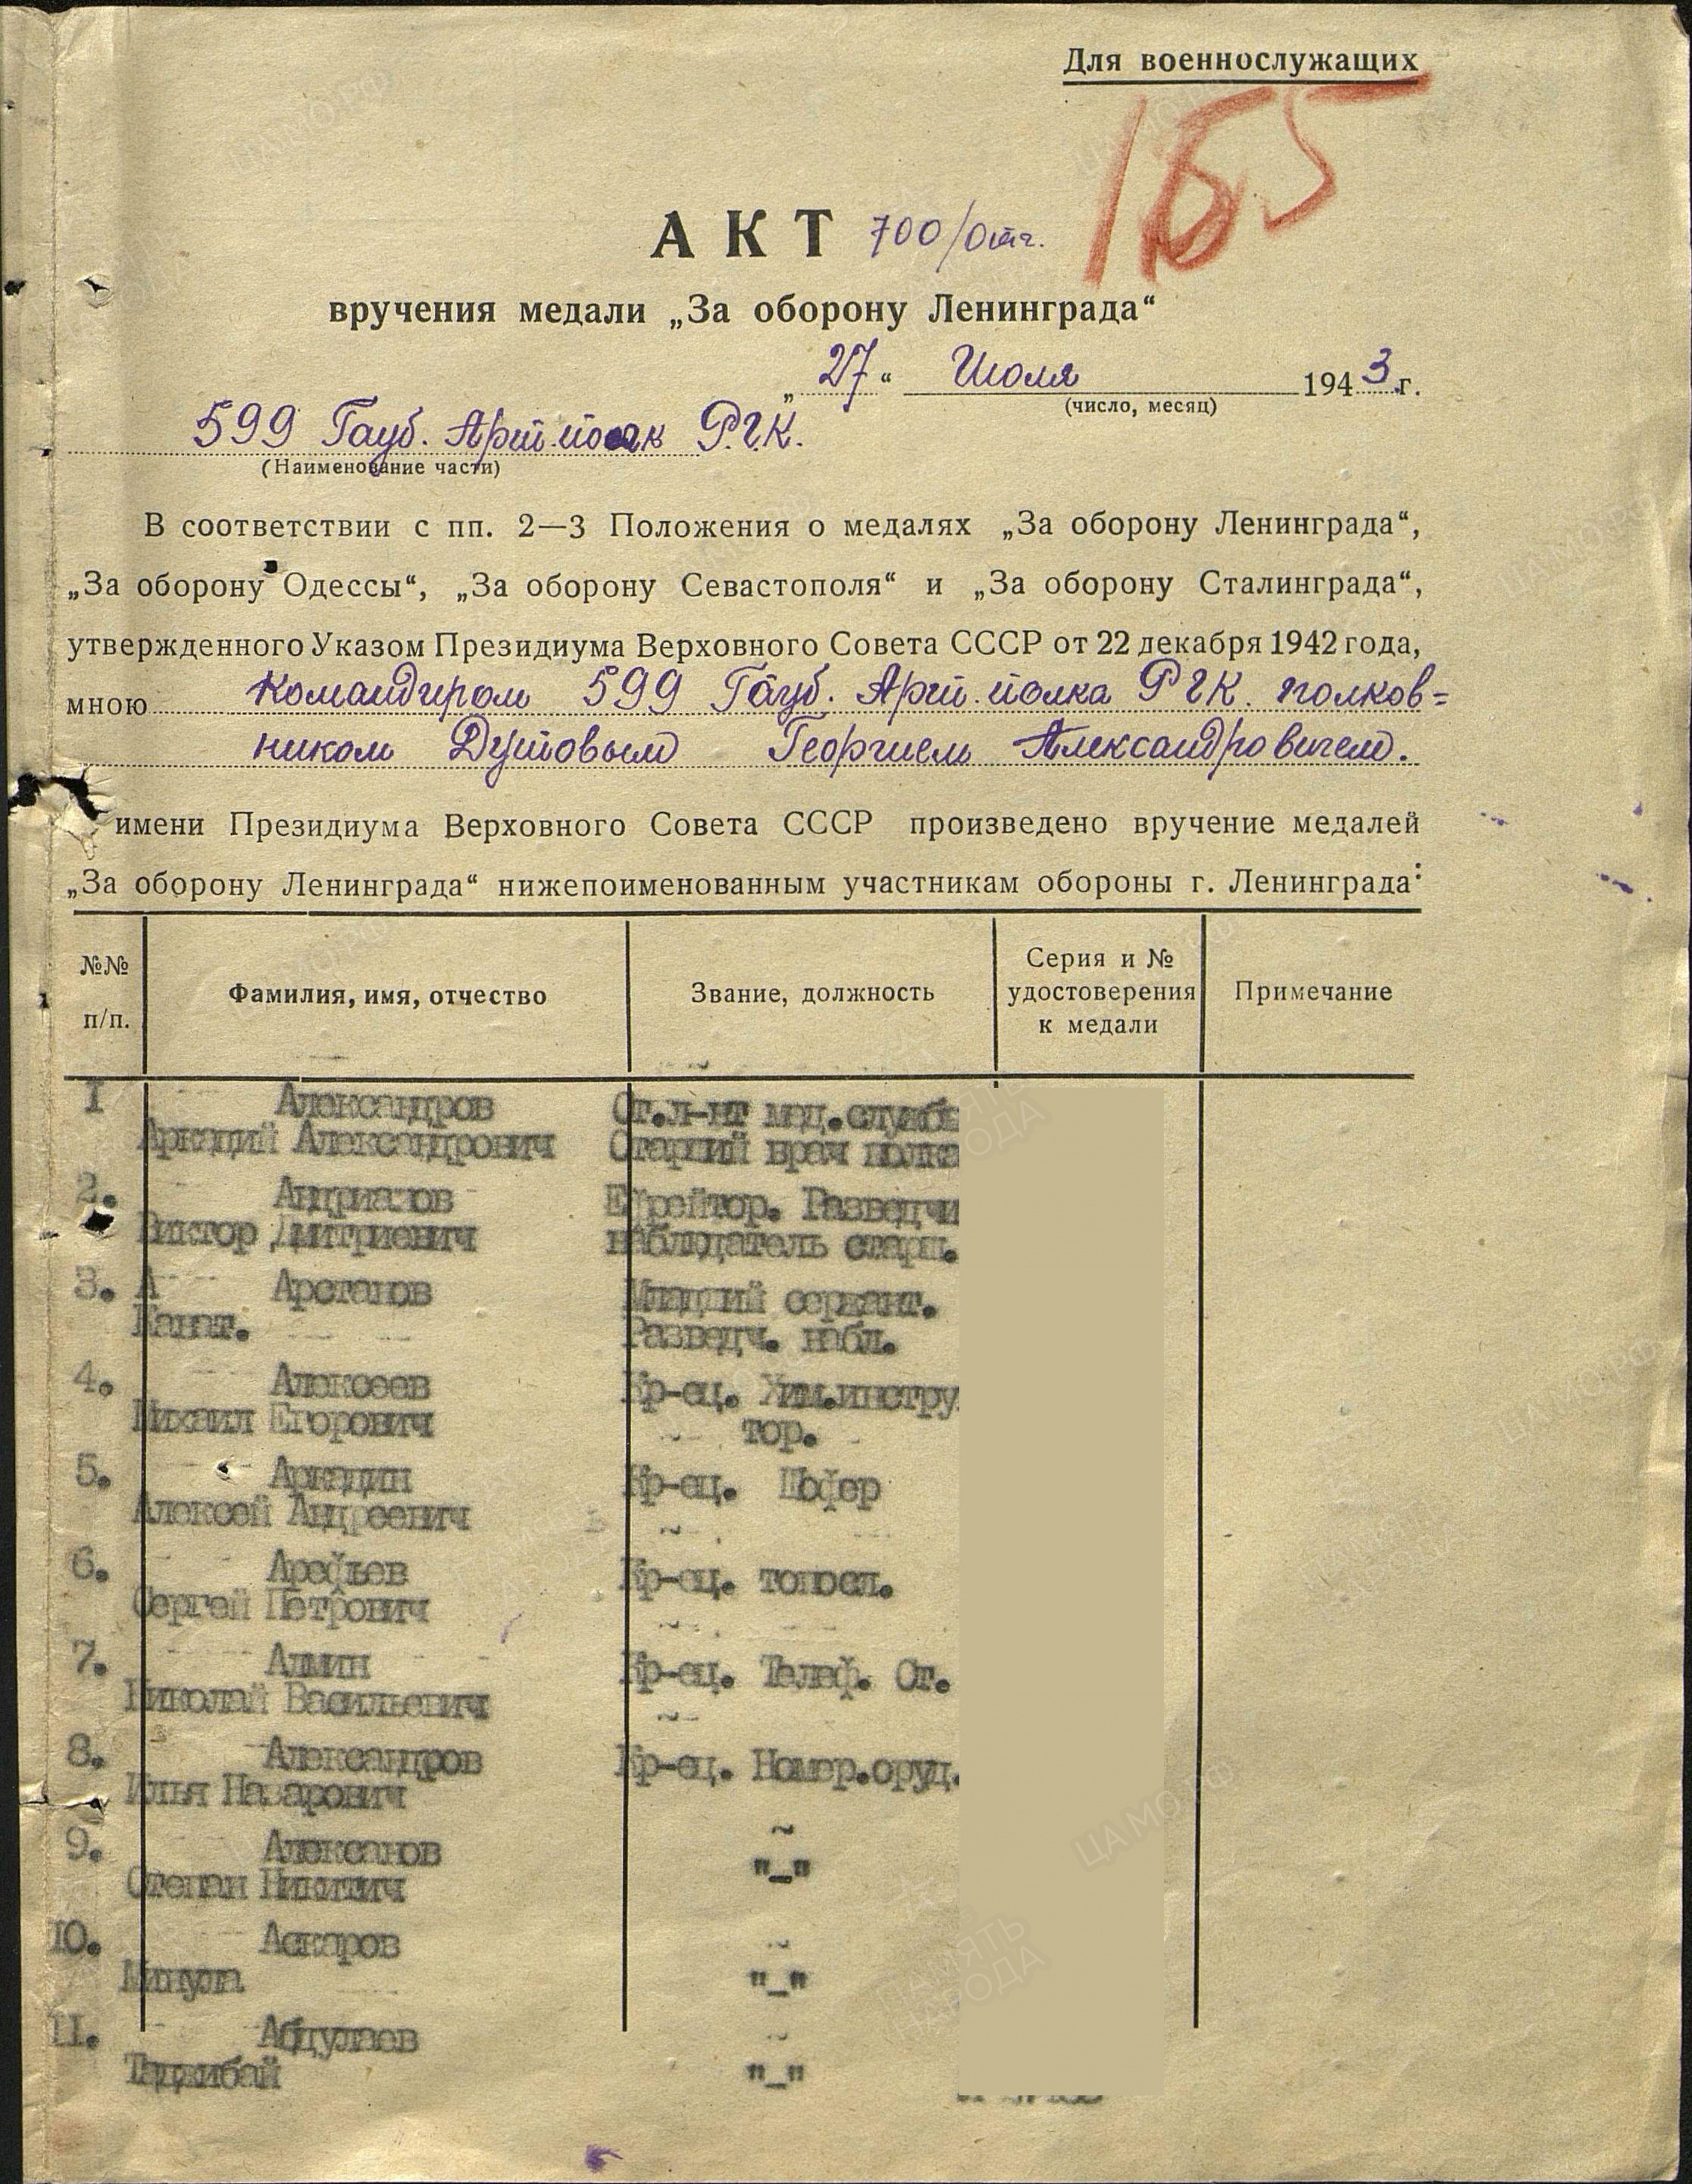 Для военнослужащих
155
АКТ 700/
вручения медали „За оборону Ленинграда“
„27“ Июля 1943 г.
(число, месяц)
599 Гауб. Арт. полк РГК.
(Наименование части)
В соответствии с пп. 2—3 Положения о медалях „За оборону Ленинграда“,
„За оборону Одессы“, „За оборону Севастополя“ и „За оборону Сталинграда“,
утвержденного Указом Президиума Верховного Совета СССР от 22 декабря 1942 года,
мною Командиром 599 Гауб. Арт. полка РГК. полков=
ником Дутовым Георгием Александровичем.
имени Президиума Верховного Совета СССР произведено вручение медалей
„За оборону Ленинграда“ нижепоименованным участникам обороны г. Ленинграда:
№№ п/п. Фамилия, имя, отчество Звание, должность Серия и № удостоверения к медали Примечание
I Александров Ст.л-нт мед.службы
Аркадий Александрович Старший врач полка
2. Андриазов Ефрейтор. Разведчи
Виктор Дмитриевич наблюдатель старш.
3. А Арстанов Младший сержант.
Канат. Разведч. набл.
4. Алексеев Кр-ец. Хим.инстру
Михаил Егорович тор.
5. Аркадин Кр-ец. Шофер
Алексей Андреевич
6. Арефьев Кр-ец. топосл.
Сергей Петрович
7. Алмин Кр-ец. Телеф. Ст.
Николай Васильевич
8. Александров Кр-ец. Номер.оруд.
Илья Назарович
9. Алексанов "_"
Степан Никитич
10. Аскаров "_"
Минула
11. Абдулаев "_"
Таджибай